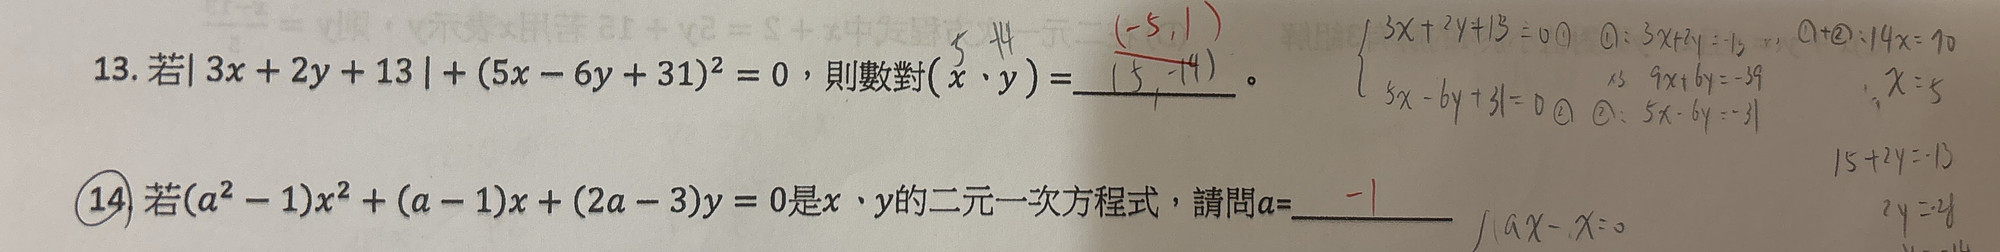 13. 若| 3x + 2y + 13 | + (5x − 6y + 31)² = 0，則數對( x、y ) = (5, -14)。
5 -14
(-5, 1)
3x + 2y + 13 = 0 ① ①: 3x+2y = -13 ①+②: 14x = -70
x3 9x+6y = -39 x = 5
5x - 6y + 31 = 0 ② ②: 5x - 6y = -31
15 + 2y = -13
14. 若(a² − 1)x² + (a − 1)x + (2a − 3)y = 0是x、y的二元一次方程式，請問a= -1
ax - x = 0